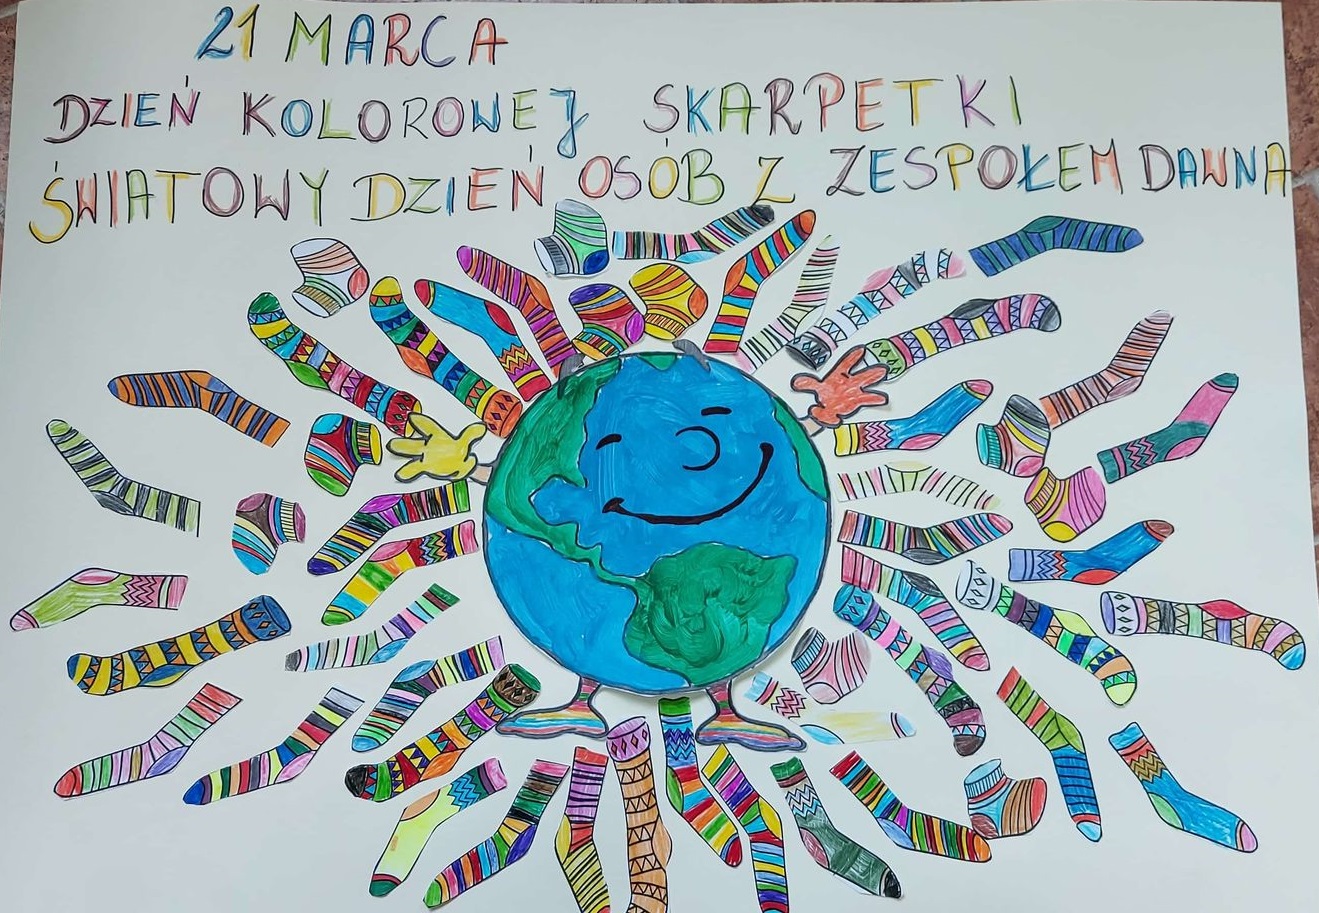 21 MARCA
DZIEŃ KOLOROWEJ SKARPETKI
ŚWIATOWY DZIEŃ OSÓB Z ZESPOŁEM DAWNA